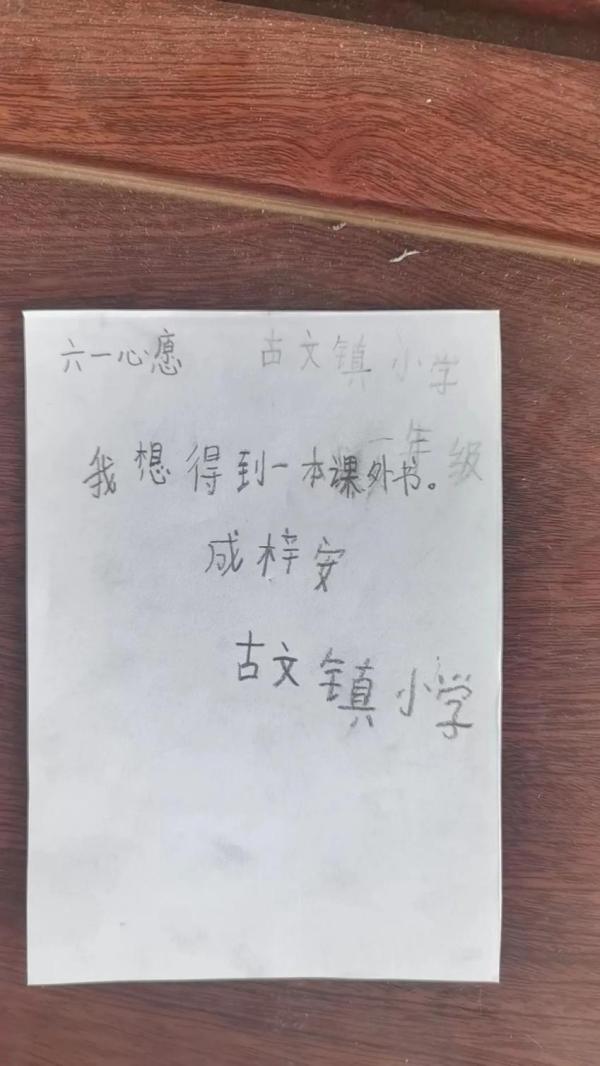 六一心愿 古文镇小学
一年级
我想得到一本课外书。
成梓安
古文镇小学